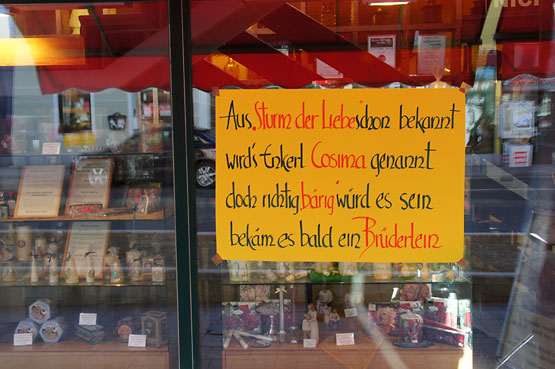 Aus „Sturm der Liebe" schon bekannt
wird's Enkerl Cosima genannt
doch richtig „bärig" würd es sein
bekäm es bald ein Brüderlein